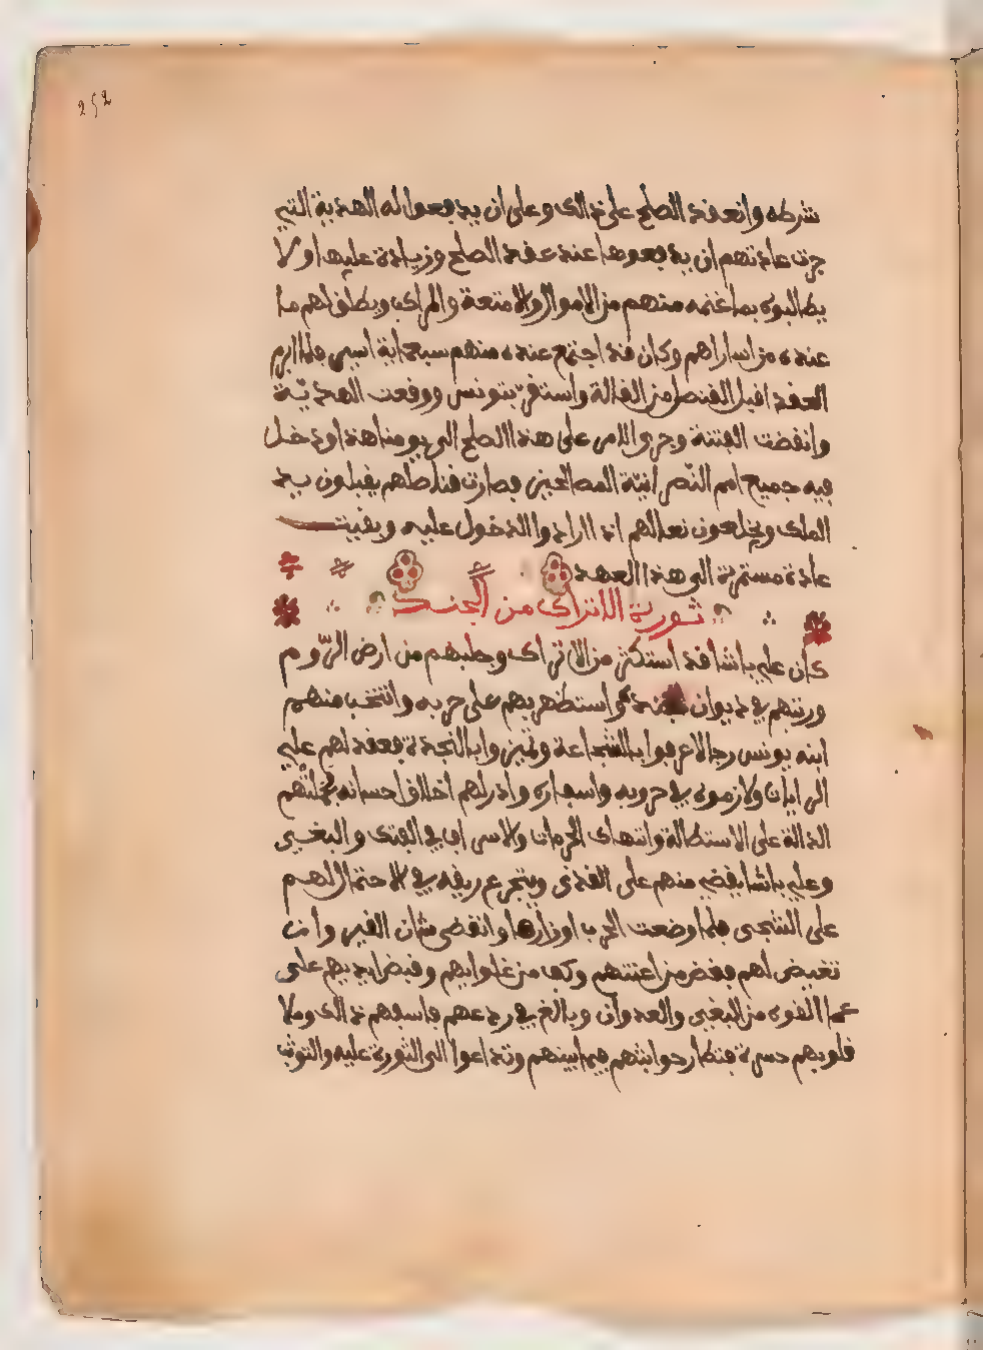 252
شرطه وانعقد الصلح على ذالك وعلى ان يدفعوا له الهدية التي
جرت عادتهم ان يدفعوها عند عقد الصلح وزيادة عليها ولا
يطالبوه بما غنمه منهم من الاموال والامتعة والمراكب ويطلق لهم ما
عنده من اساراهم وكان قد اجتمع عنده منهم سبعماية اسير فلما ابرم
العقد اقبل القنصل من القالة واستقر بتونس ودفعت الهديّة
وانقضت الفتنة وجرى الامر على هذا الصلح الى يومنا هذا ودخل
فيه جميع امم النّصرانيّة المصالحين فصارت قناصلهم يقبلون يد
الملك ويخلعون نعالهم اذا ارادوا الدخول عليه وبقيت
عادة مستمرة الى هذا العهد
ثورة الاتراك من الجند
كان علي باشا قد استكثر من الاتراك وجلبهم من ارض الرّوم
ورتبهم في ديوان جنده واستظهر بهم على حربه وانتخب منهم
ابنه يونس رجالا عرفوا بالشجاعة وتميزوا بالنجدة فعقد لهم علي
الرايات ولازموه في حروبه واسفاره وادر لهم اخلاف احسانه فحملتهم
الدالة على الاستطالة وانتهاك الحرمات والاسراف في الفتك والبغي
وعلي باشا يغضي منهم على القذى ويتجرع ريقه في الاحتمال لهم
على الشجى فلما وضعت الحرب اوزارها وانقضى شان القيروان
تغيض لهم فغض من اعنتهم وكف من غلوايهم وقبض ايديهم على
عما الفوه من البغي والعدوان وبالغ في ردعهم فاسفهم ذالك وملا
قلوبهم حسرة فتطارحوا بثهم فيما بينهم وتداعوا الى الثورة عليه والتوثب